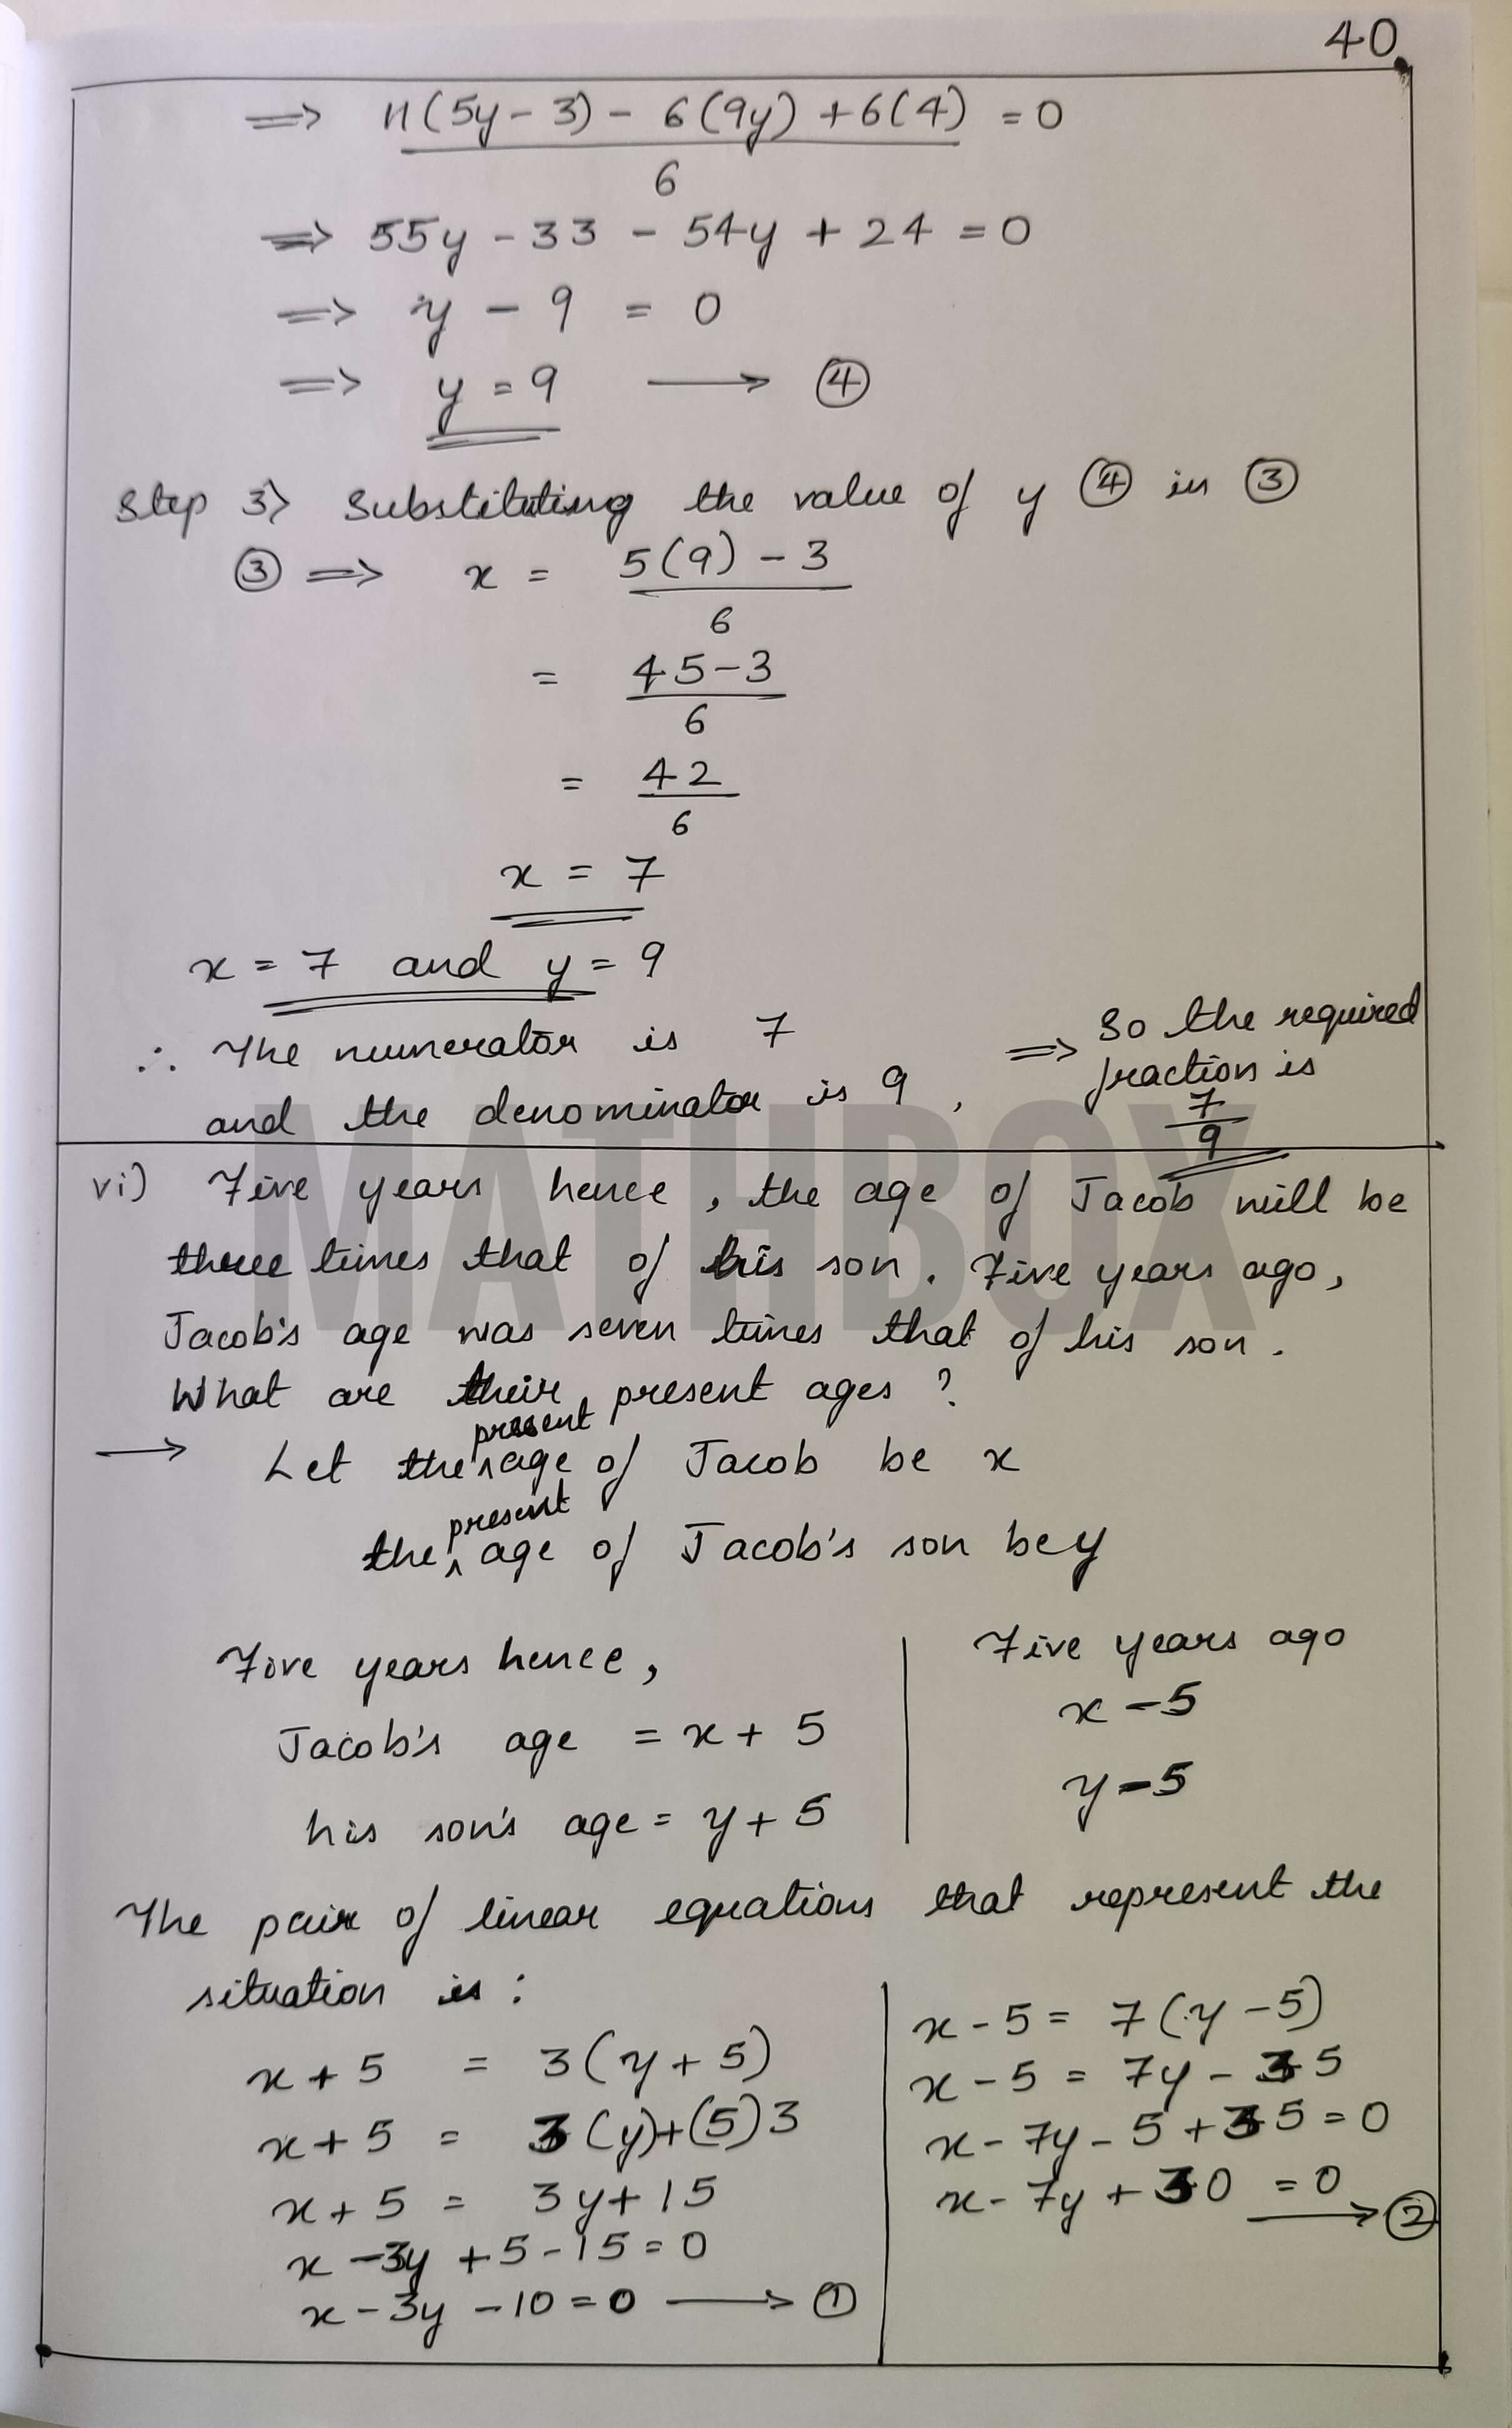 40
⇒ 11(5y - 3) - 6(9y) + 6(4) = 0
6
⇒ 55y - 33 - 54y + 24 = 0
⇒ y - 9 = 0
⇒ y = 9 → ④
Step 3> Substituting the value of y ④ in ③
③ ⇒ x = 5(9) - 3
6
= 45-3
6
= 42
6
x = 7
x = 7 and y = 9
∴ The numerator is 7
and the denominator is 9,
⇒ So the required
fraction is
7
9
MATHBOX
vi) Five years hence, the age of Jacob will be
three times that of his son. Five years ago,
Jacob's age was seven times that of his son.
What are their present ages?
→ Let the present age of Jacob be x
the present age of Jacob's son be y
Five years hence,
Jacob's age = x + 5
his son's age = y + 5
Five years ago
x - 5
y - 5
The pair of linear equations that represent the
situation is:
x + 5 = 3(y + 5)
x + 5 = 3(y)+(5)3
x + 5 = 3y + 15
x - 3y + 5 - 15 = 0
x - 3y - 10 = 0 → ①
x - 5 = 7(y - 5)
x - 5 = 7y - 35
x - 7y - 5 + 35 = 0
x - 7y + 30 = 0 → ②